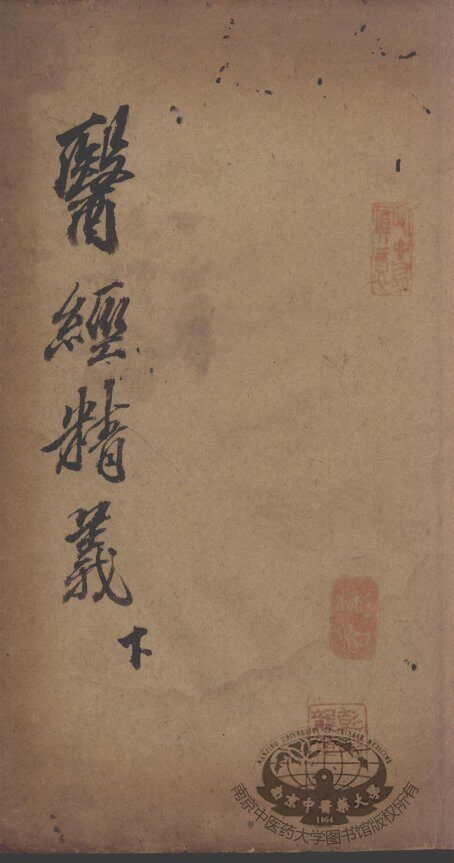 醫經精義
下
NANJING UNIVERSITY OF CHINESE MEDICINE
南京中醫藥大學
1954
南京中医药大学图书馆版权所有